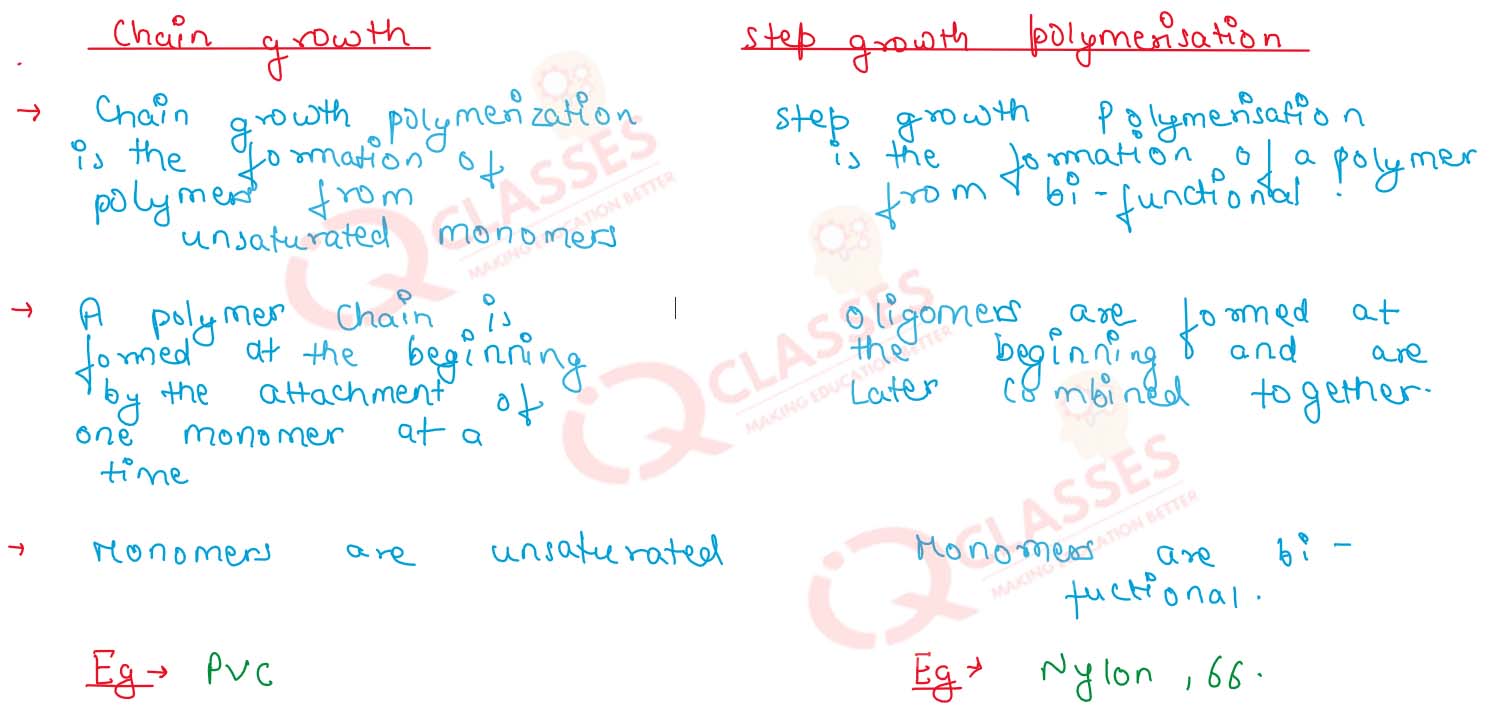 Chain growth
→ Chain growth polymerization
is the formation of
polymers from
unsaturated monomers
→ A polymer chain is
formed at the beginning
by the attachment of
one monomer at a
time
→ Monomers are unsaturated
Eg → PVC
step growth polymerisation
step growth Polymerisation
is the formation of a polymer
from bi-functional.
oligomers are formed at
the beginning and are
Later combined together.
Monomers are bi-
fuctional.
Eg → Nylon, 66.
IQ CLASSES
MAKING EDUCATION BETTER
IQ CLASSES
MAKING EDUCATION BETTER
IQ CLASSES
MAKING EDUCATION BETTER